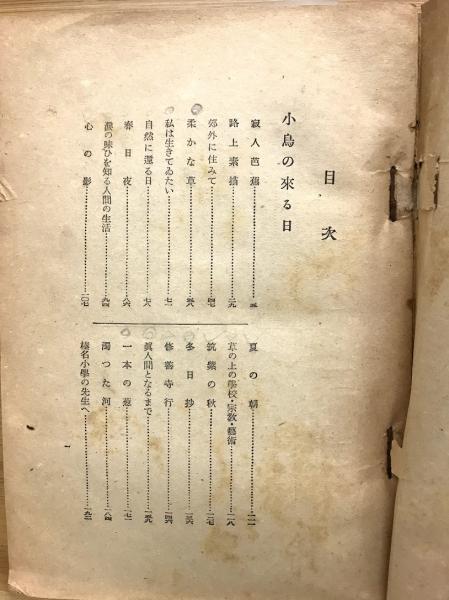 目次
小鳥の來る日
寂人芭蕉……三
路上素描……二九
郊外に住みて……四七
柔かな草……五八
私は生きてゐたい……七一
自然に還る日……七六
春日夜……八六
涙の味ひを知る人間の生活……九四
心の影……一〇七
夏の朝……一一一
草の上の學校・宗敎・藝術……一一八
筑紫の秋……一二七
冬日抄……一三六
修善寺行……一四六
眞人間となるまで……一五九
一本の葱……一七一
濁つた河……一八四
榛名小學の先生へ……一九二
一